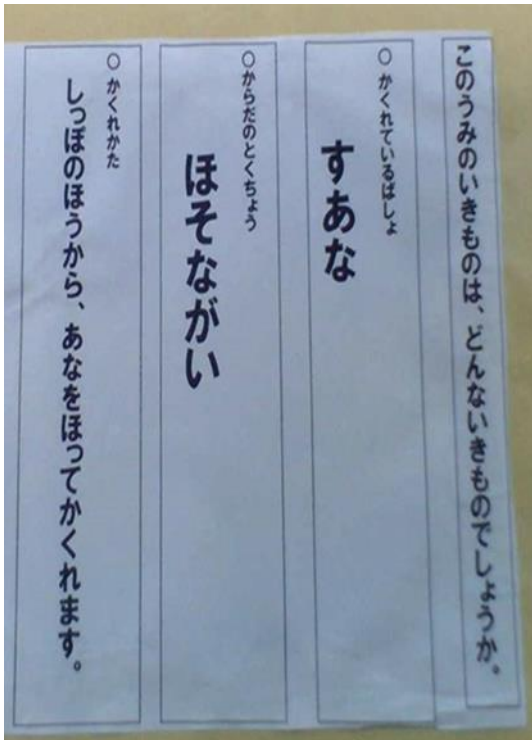 このうみのいきものは、どんないきものでしょうか。
○かくれているばしょ
すあな
○からだのとくちょう
ほそながい
○かくれかた
しっぽのほうから、あなをほってかくれます。